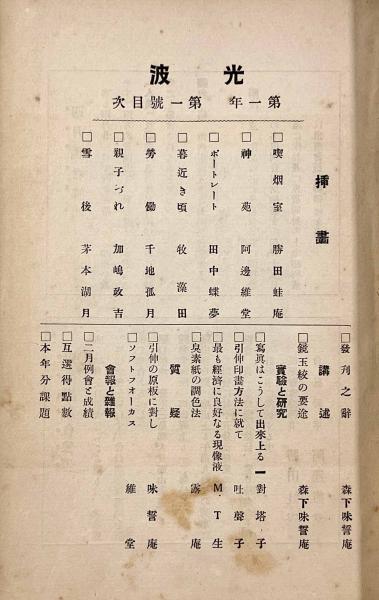 光波
第一年 第一號目次
挿畫
□喫烟室 勝田蛙庵
□神苑 阿邊維堂
□ポートレート 田中蝶夢
□暮近き頃 牧藻田
□勞働 千地孤月
□親子づれ 加嶋政吉
□雪後 茅本湖月
□發刊之辭 森下味誓庵
講述
□鏡玉絞の要途 森下味誓庵
實驗と研究
□寫眞はこうして出來上る 一對塔子
□引伸印畫方法に就て 吐聲子
□最も經濟に良好なる現像液 M.T生
□臭素紙の調色法 露庵
質疑
□引伸の原板に對し 味誓庵
□ソフトフオーカス 維堂
會報と雜報
□二月例會と成績
□互選得點數
□本年分課題